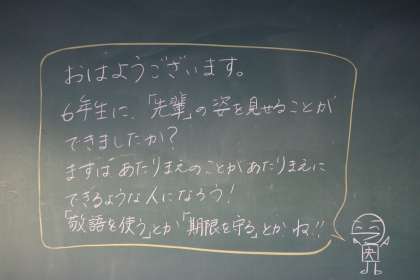 おはようございます。
6年生に、「先輩」の姿を見せることが
できましたか？
まずは「あたりまえのことがあたりまえに
できるような人になろう！
「敬語を使う」とか「期限を守る」とかね!!